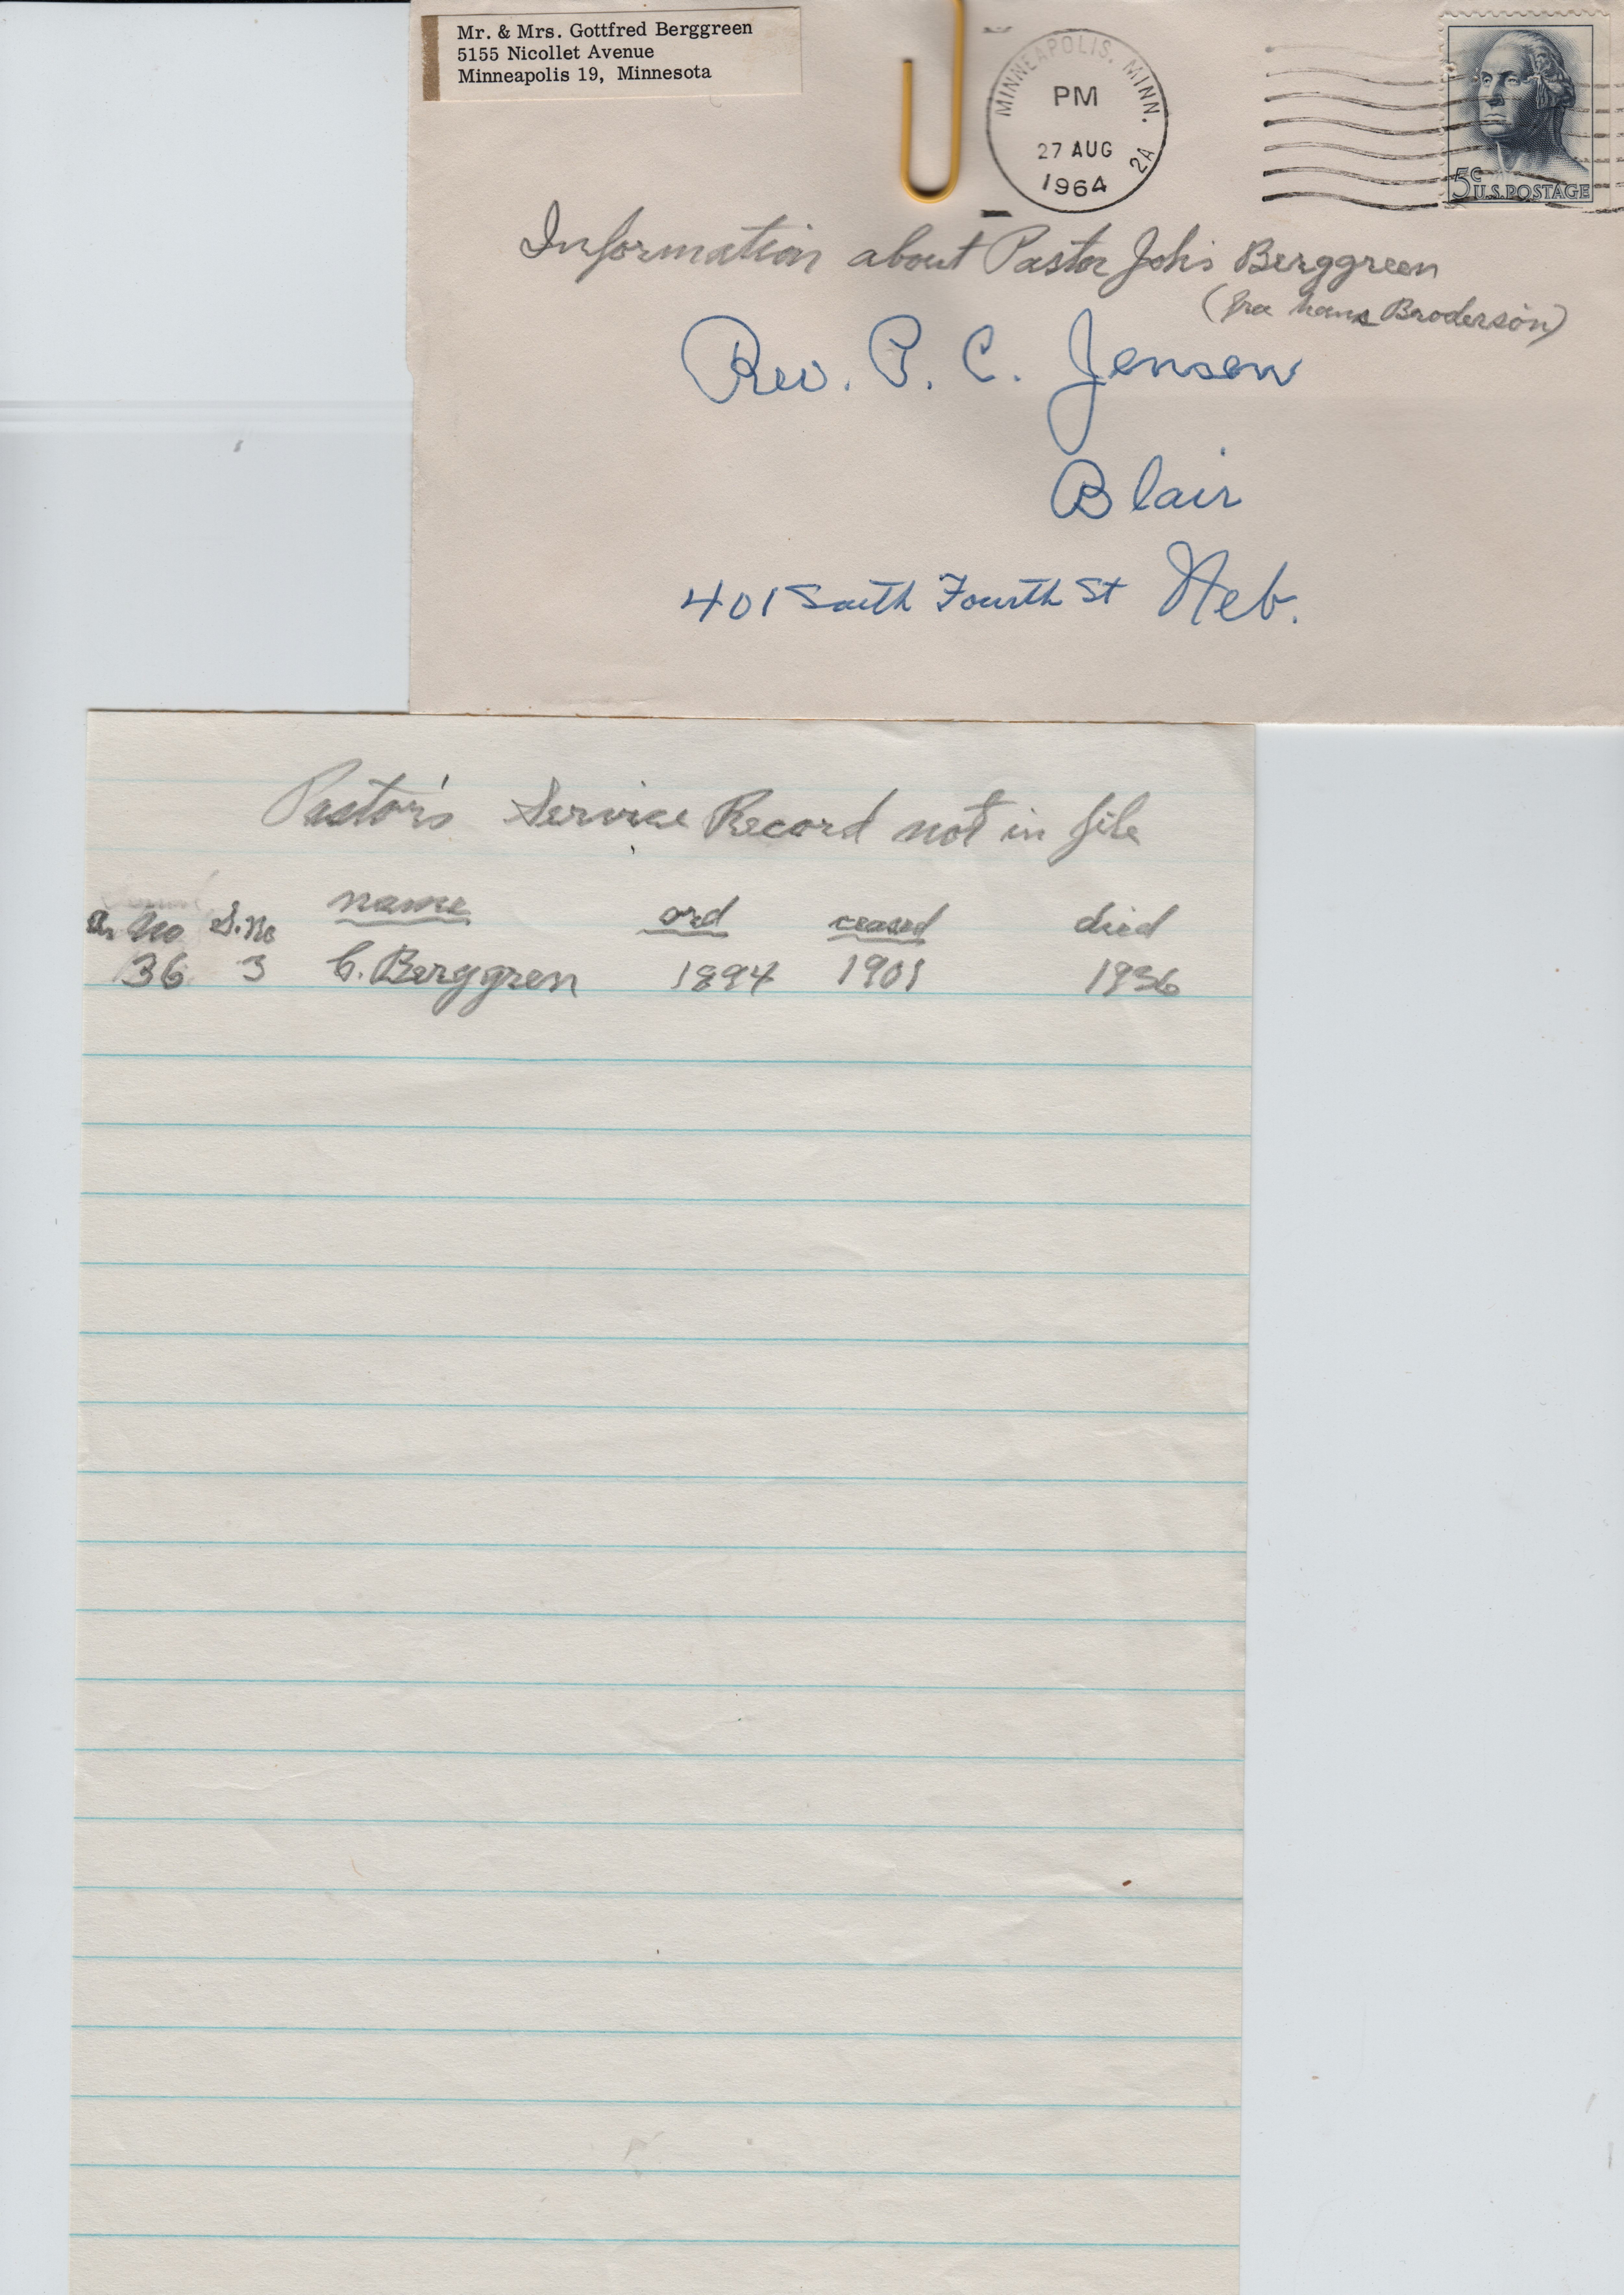 Mr. & Mrs. Gottfred Berggreen
5155 Nicollet Avenue
Minneapolis 19, Minnesota
MINNEAPOLIS, MINN.
PM
27 AUG
1964
2A
5c U.S. POSTAGE
Information about Pastor Johs Berggreen
(fra hans Broderson)
Rev. P. C. Jensen
Blair
401 South Fourth St Neb.
Pastor's Service Record not in file
No S. No name ord ceased died
36 3 C. Berggren 1894 1901 1936